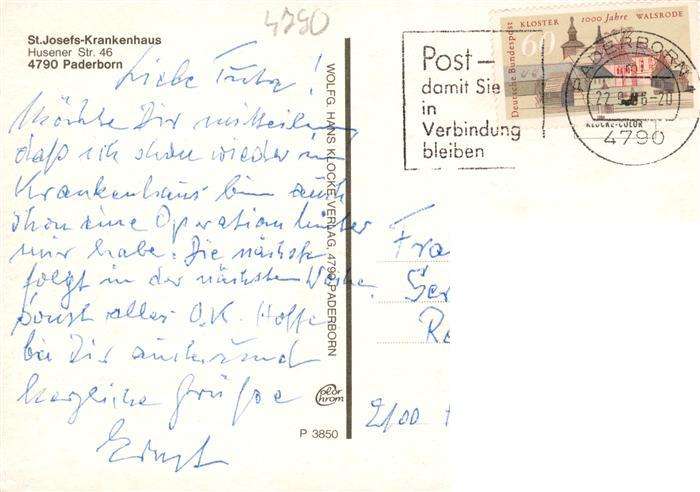 4790
St.Josefs-Krankenhaus
Husener Str. 46
4790 Paderborn
Liebe !
Möchte Dir mitteilen,
daß ich schon wieder im
Krankenhaus bin auch
schon eine Operation hinter
mir habe. Die nächste
folgt in der nächsten Woche.
Sonst alles O.K. Hoffe
bei Dir auch und
herzliche Grüße
Ernst
WOLFG. HANS KLOCKE VERLAG, 4790 PADERBORN
color chrom
P 3850
Post-
damit Sie
in
Verbindung
bleiben
KLOSTER 1000 Jahre WALSRODE
Deutsche Bundespost
60
PADERBORN
-20
KLOCKE-COLOR
4790
Fra
Ger
Re
2100